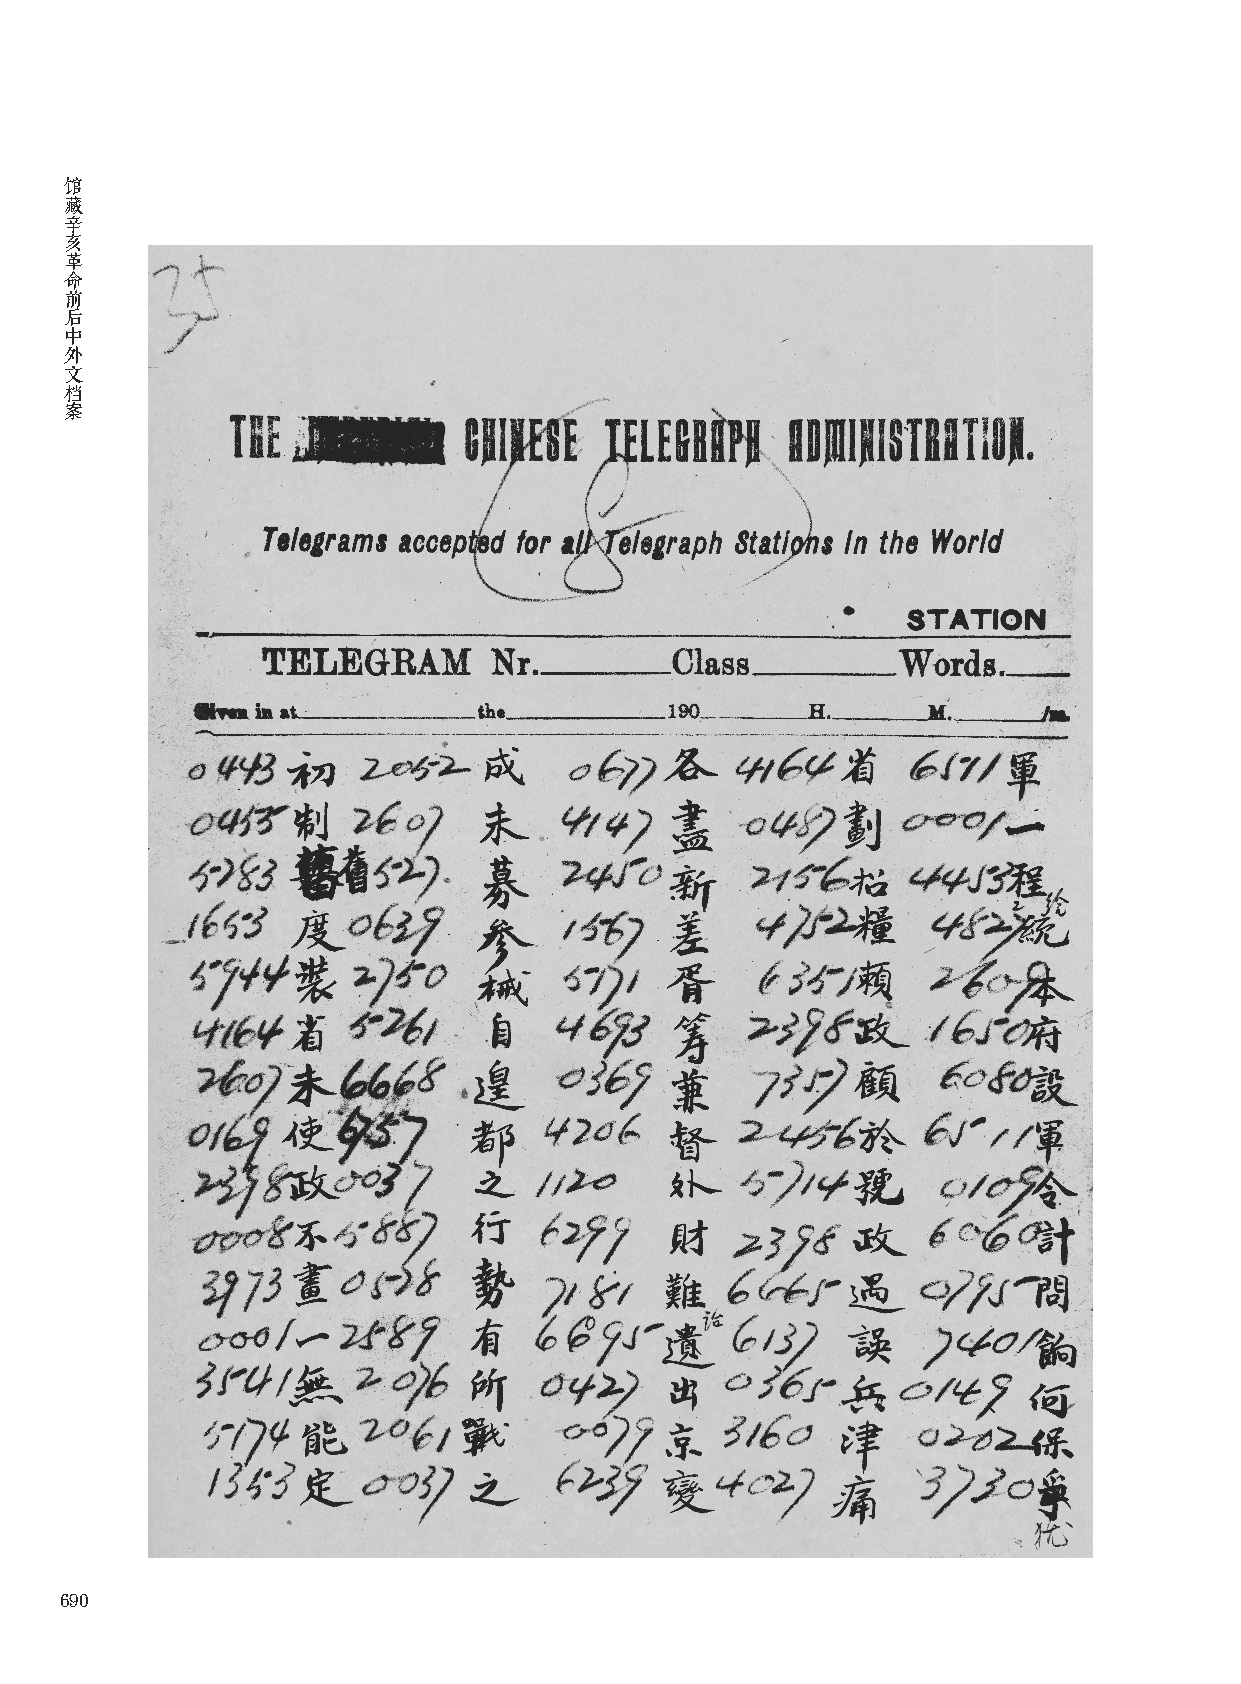 馆藏辛亥革命前后中外文档案
35
THE CHINESE TELEGRAPH ADMINISTRATION.
(8)
Telegrams accepted for all Telegraph Stations in the World
STATION
TELEGRAM Nr. Class Words.
Given in at the 190 H. M. /m.
0443 初 2052 成 0677 各 4164 省 6511 軍
0455 制 2607 未 4147 盡 0487 劃 0001 一
5283 舊 527 募 2450 新 2156 招 4453 程
1653 度 0639 參 1567 差 4752 糧 4827 統 給
5944 裝 2750 械 5171 胥 6351 賴 2609 本
4164 省 5261 自 4693 筹 2398 政 1650 府
2607 未 6668 遑 0369 兼 7357 顧 6080 設
0169 使 6757 都 4206 督 2456 於 6511 軍
2398 政 0037 之 1120 外 5714 號 0109 令
0008 不 5887 行 6299 財 2398 政 6060 計
3973 畫 0528 勢 7181 難 6665 遇 0795 問
0001 一 2589 有 6695 遺 詒 6137 誤 7401 餉
3541 無 2076 所 0427 出 0365 兵 0149 何
5174 能 2061 戰 0079 京 3160 津 0202 保
1353 定 0037 之 6239 變 4027 痛 3730
犹
690